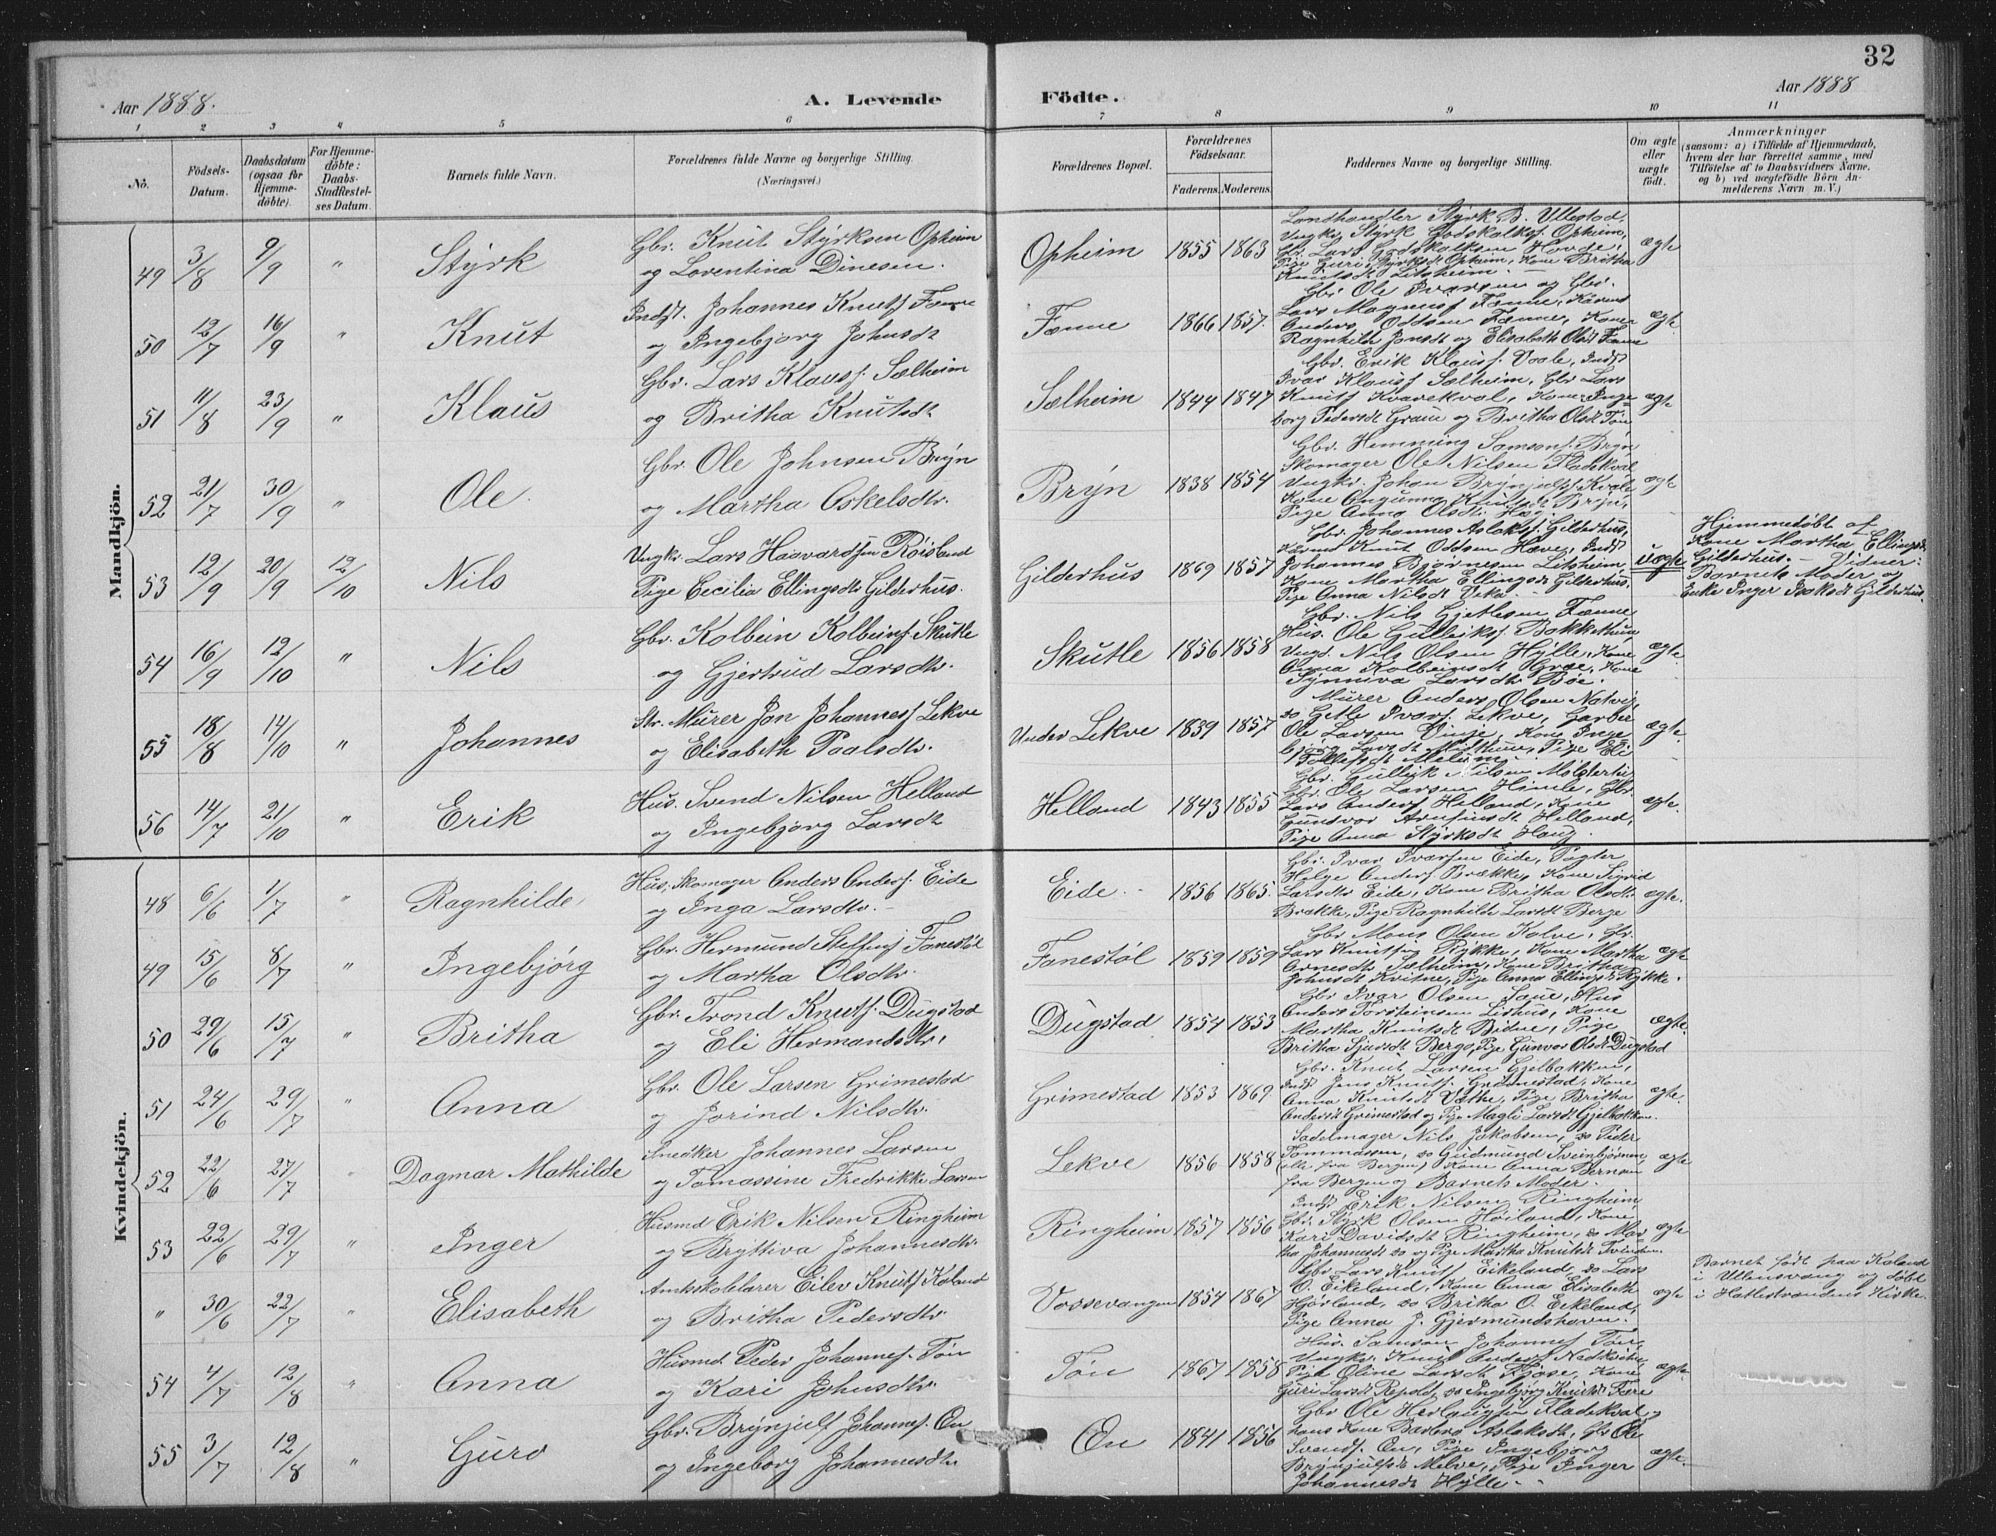 32
Aar 1888.
A. Levende Födte.
Aar 1888
1 2 3 4 5 6 7 8 9 10 11
No.
Födsels-Datum.
Daabsdatum (ogsaa for Hjemme-döbte).
For Hjemme-döbte: Daabs-Stadfæstel-ses Datum.
Barnets fulde Navn.
Forældrenes fulde Navne og borgerlige Stilling. (Næringsvei.)
Forældrenes Bopæl.
Forældrenes Födselsaar.
Faderens. Moderens.
Faddernes Navne og borgerlige Stilling.
Om ægte eller uægte födt.
Anmærkninger
(saasom: a) i Tilfælde af Hjemmedaab, hvem der har forrettet samme, med Tilföielse af to Daabsvidners Navne, og b) ved uægtefödte Börn An-melderens Navn m. V.)
Mandkjön.
49 3/8 9/9 " Styrk
Gbr. Knut Styrksen Opheim
og Lorentina Dinesen.
Opheim 1855 1863
Landhandler Styrk B. Ullestad,
Ungk. Styrk Godskalks. Opheim,
Gbr. Lars Godskalksen Hovde,
Pige Guri Styrksdt Opheim, Kone Britha
Knutsdt Litsheim.
ægte
50 12/7 16/9 " Knut
Indst. Johannes Knuts. Fenne
og Ingebjorg Johnsdt
Fenne 1866 1857.
Gbr. Ole Iversen og Gbr.
Lars Magnus. Fenne, Kaarmd
Anders Oddsen Fenne, Kone
Ragnhilde Jonsdt og Elisabeth Olsdt Fenne
ægte
51 11/8 23/9 " Klaus
Gbr. Lars Klaus. Sælheim
og Britha Knutsdt
Sælheim 1844 1847
Gbr. Erik Klaus. Vaale, Indst
Ivar Klaus. Sælheim, Gbr Lars
Knuts. Kvarekval, Kone Inge
borg Pedersdt Graue og Britha Olsdt Tøn
ægte
52 21/7 30/9 " Ole.
Gbr. Ole Johnsen Bryn
og Martha Askelsdtr.
Bryn 1838 1854
Gbr. Hemming Samsons. Bryn
Skomager Ole Nilsen Fladekval
Ungkr. Johan Brynjulfs. Kvale
Kone Angunna Knutsdt Bryn,
Pige Anna Olsdt. Hæg.
ægte
53 12/9 20/9 12/10 Nils
Ungkr. Lars Haavardsen Röisland
Pige Cecilia Ellingsdtr Gilderhus.
Gilderhus 1869 1857
Gbr. Johannes Aslaks. Gilderhus,
Kaarmd Knut Oddsen Hæve, Indst
Johannes Bjørnsen Litsheim
Kone Martha Ellingsdt Gilderhus,
Pige Anna Nilsdt Veka.
uægte
Hjemmedøbt af
Kone Martha Ellingsdt
Gilderhus. – Vidner:
Barnets Moder og
Enke Inger Isaksdt Gilderhus.
54 16/9 12/10 " Nils
Gbr. Kolbein Kolbeins. Skutle
og Gjertrud Larsdtr.
Skutle 1856 1858
Gbr. Nils Gjetlesen Fenne
Hus. Ole Gulleiks. Bakkethun
Ungd. Nils Olsen Hylle, Kone
Anna Kolbeinsdt Græe, Kone
Synniva Larsdtr Bøe.
ægte
55 18/8 14/10 " Johannes
Str. Murer Jon Johannes. Lekve
og Elisabeth Paalsdtr.
Under Lekve 1839 1857
Murer Anders Olsen Natvig,
do Getle Ivars. Lekve, Garver
Ole Larsen Vinje, Kone Inge
bjørg Larsdt Midthun, Pige Eli
Tollefsdt Melum.
ægte.
56 14/7 21/10 " Erik
Hus. Svend Nilsen Helland
og Ingebjørg Larsdt
Helland 1843 1855
Gbr. Gulleik Nilsen Mølstertei
Gbr. Ole Larsen Himle, Gbr.
Lars Anders. Helland, Kone
Gundvor Arnfinsdt Helland,
Pige Anna Styrksdt Haug.
ægte.
Kvindekjön.
48 6/6 1/7 " Ragnhilde
Hus. Skomager Anders Anders. Eide
og Inga Larsdtr.
Eide. 1856 1865.
Gbr. Ivar Ivarsen Eide, Pagter
Helge Anders. Brække, Kone Sigrid
Larsdtr Eide, Kone Britha Olsdtr
Brække, Pige Ragnhilde Larsdt Berge
ægte.
49 15/6 8/7 " Ingebjørg
Gbr. Hermund Steffens. Fanestøl
og Martha Olsdtr.
Fanestøl 1859 1859
Gbr Mons Olsen Kalve, Gbr.
Lars Knutsen Rykke, Kone Martha
Arnesdtr Sælheim, Kone Britha
Johnsdt Kvitne, Pige Anna Ellingsdt Rykke.
ægte
50 29/6 15/7 " Britha
Gbr. Trond Knuts. Dugstad
og Eli Hermandsdtr.
Dugstad 1854 1853
Gbr Ivar Olsen Saue, Hus
Anders Torsteinsen Lirhus, Kone
Martha Knutsdt Bidne, Pige
Britha Sjursdt Berge, Pige Gunvor Olsdt Dugstad
ægte.
51 24/6 29/7 " Anna
Gbr. Ole Larsen Grimestad
og Jorind Nilsdtr.
Grimestad 1853 1869.
Gbr. Knut Larsen Gjelbakken,
Indst Jens Knuts. Grimestad, Kone
Anna Knutsdt Væthe, Pige Britha
Andersdt Grimestad og Pige Magli Larsdt Gjelbakken.
ægte.
52 22/6 27/7 " Dagmar Mathilde
Snedker Johannes Larsen
og Tomassine Fredrikke Larsen
Lekve 1856 1858
Sadelmager Nils Jakobsen, do Peder
Tommassen, do Gudmund Sveinbjørnsen
(alle fra Bergen) Kone Anna Bernsen
fra Bergen og Barnets Moder.
ægte
53 22/6 29/7 " Inger
Husmd Erik Nilsen Ringheim
og Bryttiva Johannesdtr.
Ringheim 1857 1856
Indst Erik Nilsen Ringheim,
Gbr. Styrk Olsen Höiland, Kone
Kari Davidsdt Ringheim, do Mar
tha Johannesdt do og Pige Martha Knutsdt Tvinden.
ægte
" 30/6 22/7 " Elisabeth
Amtskolelærer Eilev Knuts. Kaland
og Britha Pedersdtr
Vossevangen 1854 1867
Gbr Lars Knuts. Eikeland, do Lars
O. Eikeland, Kone Anna Elisabeth
Hjørland, do Britha O. Eikeland,
Pige Anna J. Gjermundshavn.
ægte
Barnet født paa Kaland
i Ullensvang og døbt
i Hatlestrandens Kirke.
54 4/7 12/8 " Anna
Husmd. Peder Johannes. Tøn
og Kari Johnsdtr.
Tøn 1867 1858
Hus. Samson Johannes. Tøn,
Ungkr. Knut Anders. Nedkvitne
Pige Oline Larsdt Kjøse, Kone
Guri Larsdt Repold, do Ingebjørg Knutsdt Fære
ægte.
55 3/7 12/8 " Guro
Gbr. Brynjulf Johannes. En
og Ingeborg Johannesdtr
En 1841 1856
Gbr Ole Herlaugsen Fladekval,
hans Kone Barbro Aslaksdt, Gbr Ole
Svends. En, Pige Ingebjorg
Brynjulfsdt Melve, Pige Inger
Johannesdt Hylle.
ægte.